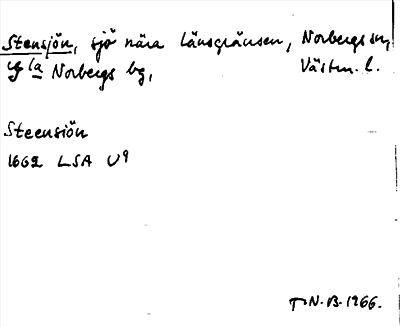 Stensjön, sjö nära Länsgränsen, Norbergs sn,
la Norbergs bg, Västm. l.
Steensiön
1662 LSA U9
T.N.B. 1966.